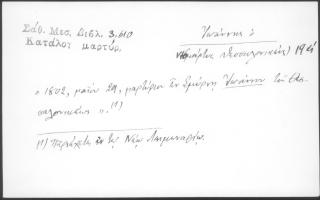 Σάθ. Μεσ. Βιβλ. 3.610
Κατάλογ μαρτύρ.
Ἰωάννης ὁ
Θεσσαλονικεύς) 19
« 1802, μαΐου 29, μαρτύριον ἐν Σμύρνῃ Ἰωάννου τοῦ Θεσ
σαλονικέως ». (1)
(1) Περιέχεται ἐν τῷ Νέῳ Λειμωναρίῳ.